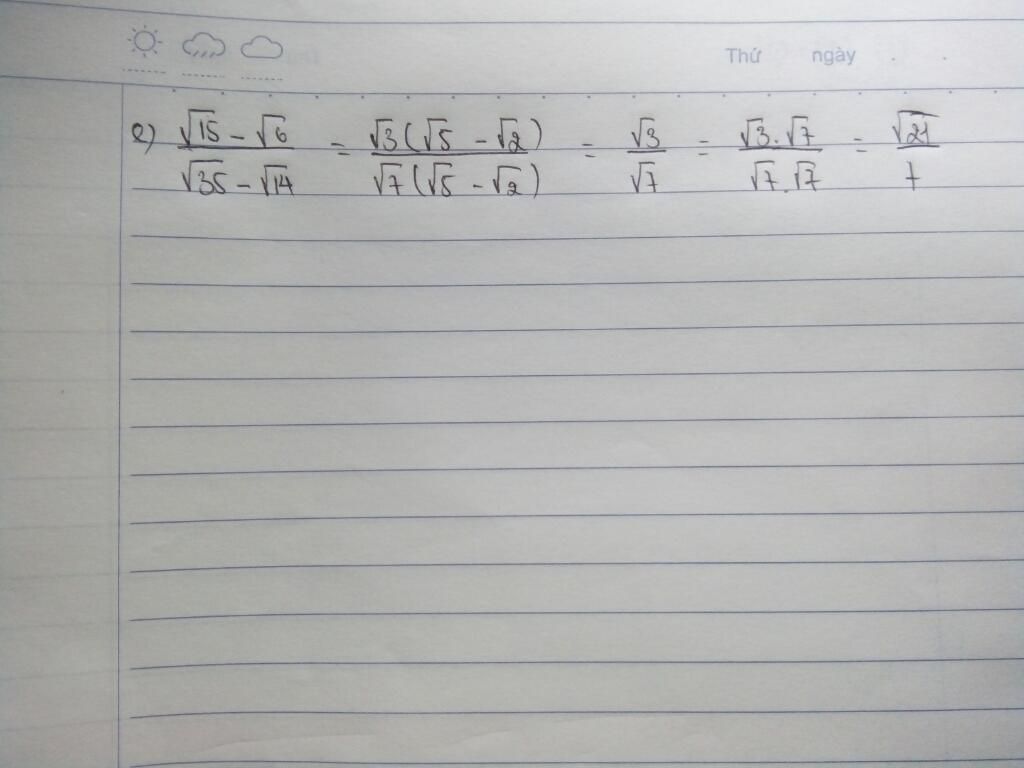 Thứ ngày . .
e) \frac{\sqrt{15} - \sqrt{6}}{\sqrt{35} - \sqrt{14}} = \frac{\sqrt{3}(\sqrt{5} - \sqrt{2})}{\sqrt{7}(\sqrt{5} - \sqrt{2})} = \frac{\sqrt{3}}{\sqrt{7}} = \frac{\sqrt{3}.\sqrt{7}}{\sqrt{7}.\sqrt{7}} = \frac{\sqrt{21}}{7}